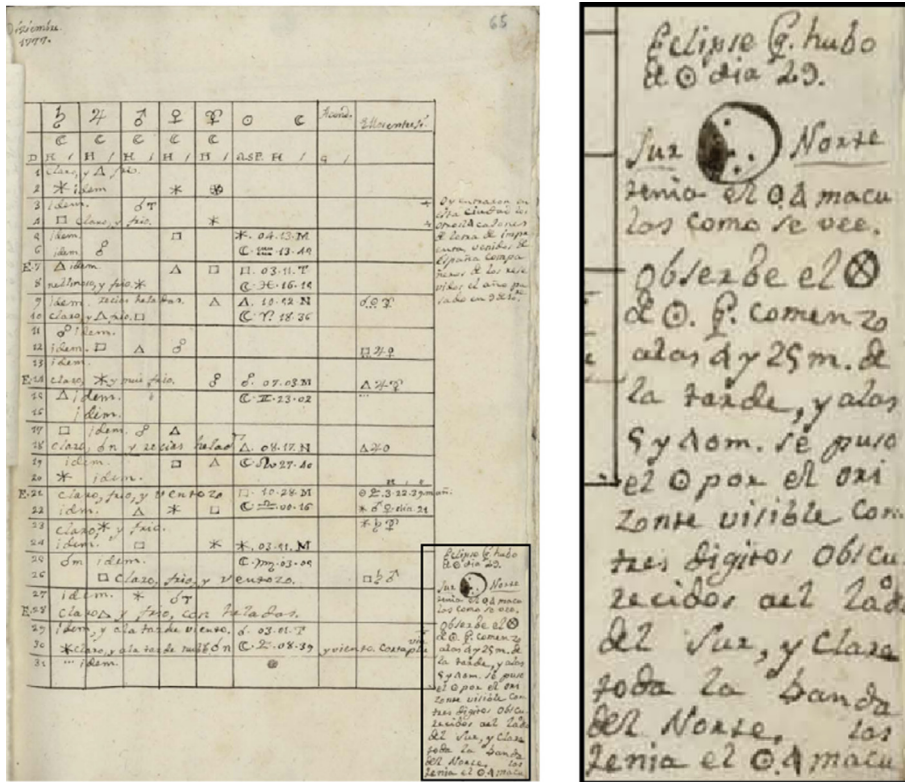 Diziembre
1777.
65
♄ ♃ ♂ ♀ ☿ ☉ ☾
☾ ☾ ☾ ☾ ☾
D H / H / H / H / H / ASP. H / g /
1 Claro, y △ frio.
2 ✶ idem ✶
3 idem.
4 □ Claro, y frio. ✶
5 idem □ ✶. 04.13.M
6 idem ☍ ☾. ♒ .13.49
E.7 △ idem △ □ □. 03.11.T
8 y frio ✶ ☾. ♓. 16.19
9 idem. recias heladas. △ △. 10.42.N
10 claro, y △ frio. □ ☾. ♈. 18.36
11 ☍ idem.
12 idem. □ △ ☍
13 idem.
E.14 Claro, ✶ y mui frio. ☍ ☍. 07.03.M △ ♃ ☿
15 △ idem. ☾. ♊. 23.02
16 idem.
17 □ idem. ☍ △
18 claro, y recias △. 08.17.N
19 idem. □ △ ☾. ♌ 27.40
20 ✶ idem.
E.21 claro, frio, y ventozo □. 10.28.M
22 idem. △ ✶ □ ☾. ♎. 00.16
23 claro, ✶ y frio. ✶ ♄ ☿
24 idem. □ ✶ ✶. 03.41.M
25 idem. ☾. ♏. 03.09
26 □ Claro, frio, y ventozo. □ ♄ ♂
27 idem. ✶
E.28 Claro △ y frio, con heladas.
29 idem, y ala tarde viento. ☌. 03.01.T
30 ✶ Claro, y ala tarde ☾. ♑. 08.39 y viento.
31 idem.
Oy entraron en
esta Ciudad los
otros 4 caxones
de letra de impre
nta, venidos de
España compa
ñeros de los rese
vidos el año pa
sado en
Eclipse q. hubo
d ☉ dia 29.
Sur Norte
tenia el ☉. 4 macu
las como se vee.
Observe el ⊗
d ☉. q. comenzo
alas 4 y 25 m. de
la tarde, y alas
5 y 10m. se puso
el ☉ por el ori
zonte visible con
tres digitos obscu
recidos del lado
del Sur, y clara
toda la banda
del Norte, las
tenia el ☉. 4 macu
Eclipse q. hubo
d ☉ dia 29.
Sur Norte
tenia el ☉. 4 macu
las como se vee.
Observe el ⊗
d ☉. q. comenzo
alas 4 y 25 m. de
la tarde, y alas
5 y 10m. se puso
el ☉ por el ori
zonte visible con
tres digitos obscu
recidos del lado
del Sur, y clara
toda la banda
del Norte, las
tenia el ☉. 4 macu